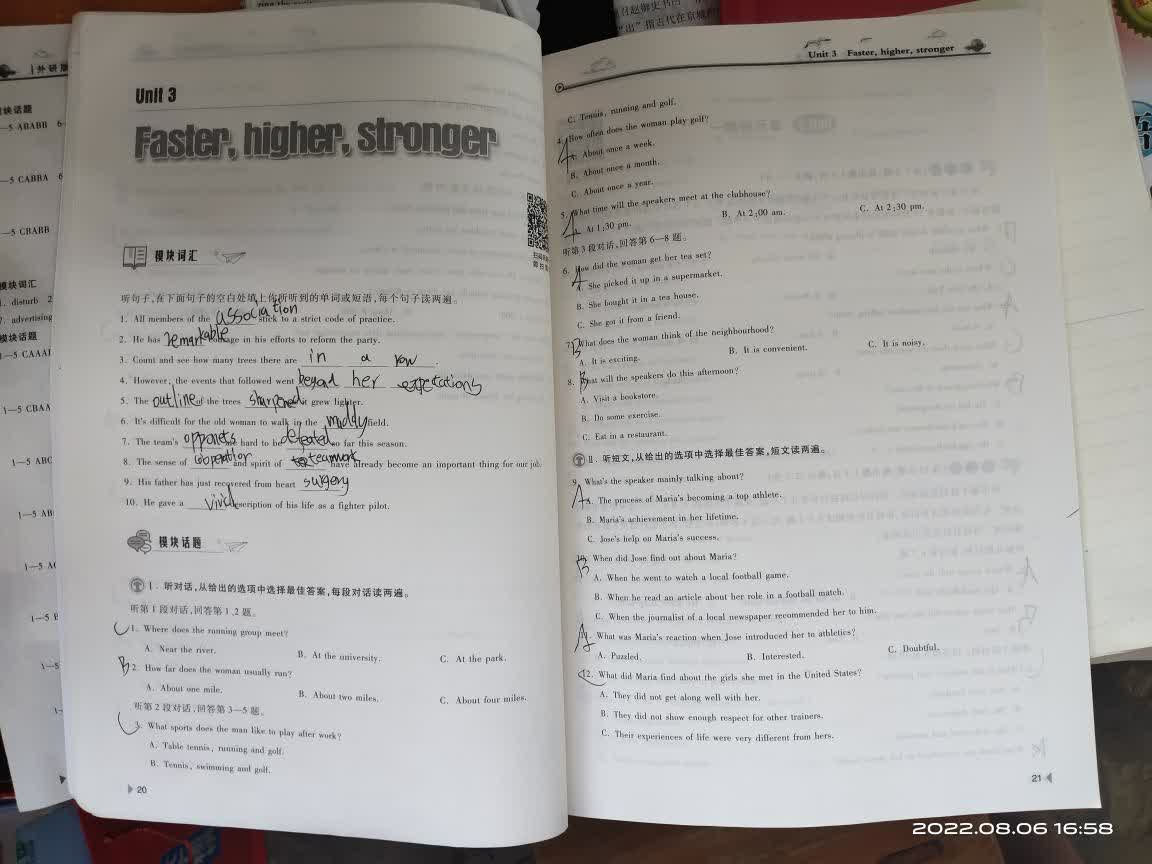 外研版
块话题
—5 ABABB 6
—5 CABBA 6
—5 CBABB
模块词汇
. disturb 2
. advertising
模块话题
1—5 CAAAI
1—5 CBAA
1—5 ABC
1—5 AB
1—5 A
1—5
1—5
Unit 3
Faster, higher, stronger
模块词汇
听句子,在下面句子的空白处填上你所听到的单词或短语,每个句子读两遍。
1. All members of the association stick to a strict code of practice.
2. He has remarkable courage in his efforts to reform the party.
3. Count and see how many trees there are in a row.
4. However, the events that followed went beyond her expectations
5. The outline of the trees sharpened as it grew lighter.
6. It's difficult for the old woman to walk in the muddy field.
7. The team's opponets are hard to be defeated so far this season.
8. The sense of cooperation and spirit of teamwork have already become an important thing for our job.
9. His father has just recovered from heart surgery
10. He gave a vivid description of his life as a fighter pilot.
模块话题
Ⅰ. 听对话,从给出的选项中选择最佳答案,每段对话读两遍。
听第1段对话,回答第1、2题。
C 1. Where does the running group meet?
A. Near the river. B. At the university. C. At the park.
B 2. How far does the woman usually run?
A. About one mile. B. About two miles. C. About four miles.
听第2段对话,回答第3—5题。
C 3. What sports does the man like to play after work?
A. Table tennis, running and golf.
B. Tennis, swimming and golf.
20
Unit 3 Faster, higher, stronger
C. Tennis, running and golf.
A 4. How often does the woman play golf?
A. About once a week.
B. About once a month.
C. About once a year.
A 5. What time will the speakers meet at the clubhouse?
A. At 1:30 pm. B. At 2:00 am. C. At 2:30 pm.
听第3段对话,回答第6—8题。
A 6. How did the woman get her tea set?
A. She picked it up in a supermarket.
B. She bought it in a tea house.
C. She got it from a friend.
B 7. What does the woman think of the neighbourhood?
A. It is exciting. B. It is convenient. C. It is noisy.
B 8. What will the speakers do this afternoon?
A. Visit a bookstore.
B. Do some exercise.
C. Eat in a restaurant.
Ⅱ. 听短文,从给出的选项中选择最佳答案,短文读两遍。
A 9. What's the speaker mainly talking about?
A. The process of Maria's becoming a top athlete.
B. Maria's achievement in her lifetime.
C. Jose's help on Maria's success.
B 10. When did Jose find out about Maria?
A. When he went to watch a local football game.
B. When he read an article about her role in a football match.
C. When the journalist of a local newspaper recommended her to him.
A 11. What was Maria's reaction when Jose introduced her to athletics?
A. Puzzled. B. Interested. C. Doubtful.
C 12. What did Maria find about the girls she met in the United States?
A. They did not get along well with her.
B. They did not show enough respect for other trainers.
C. Their experiences of life were very different from hers.
21
2022.08.06 16:58